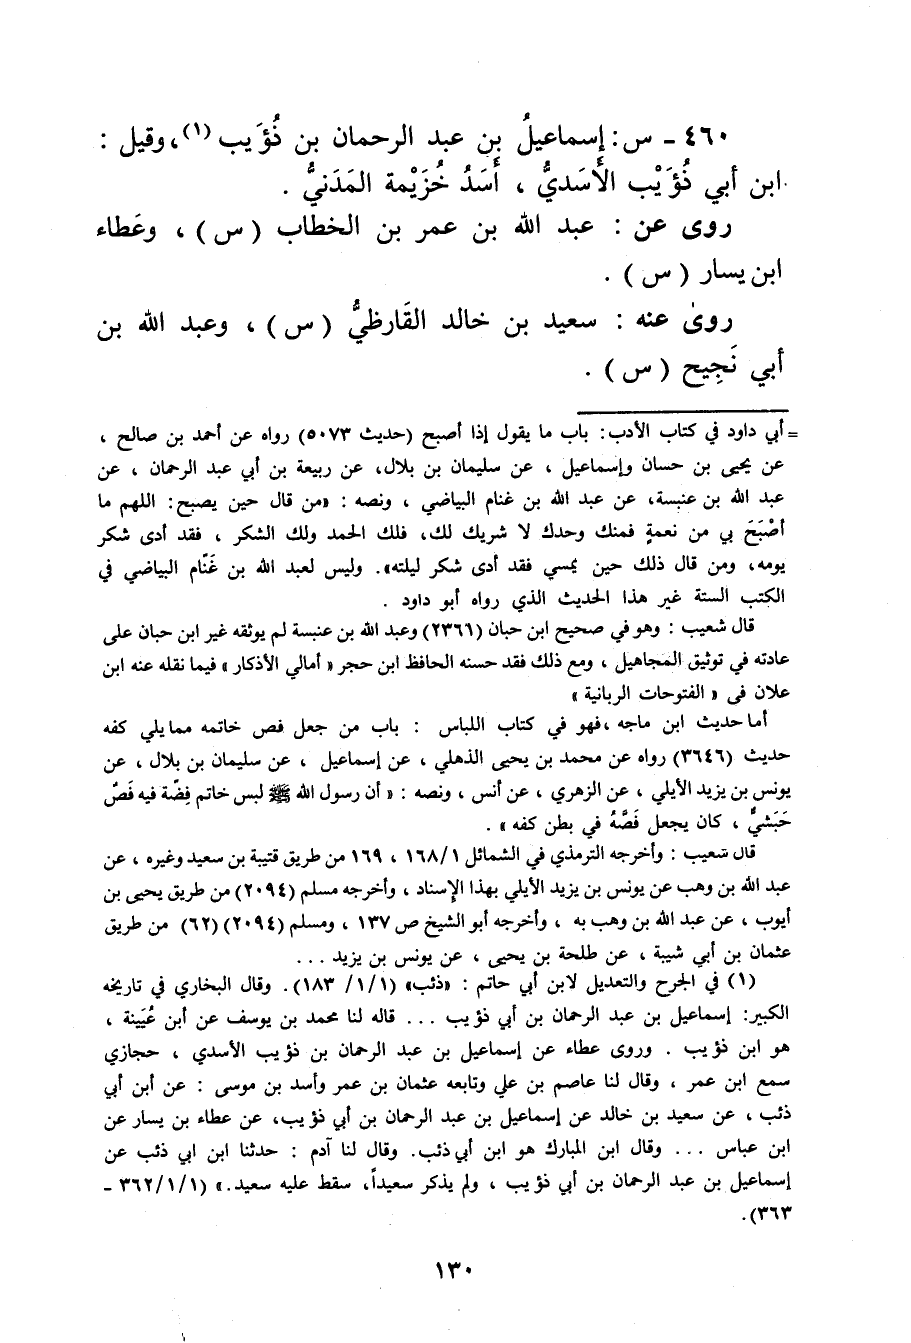 ٤٦٠ - س : إسماعيلُ بن عبد الرحمان بن ذُؤَيب (١)، وقيل :
ابن أبي ذُؤَيْب الأَسَديُّ ، أَسَدُ خُزَيْمة المَدَنيُّ .
روى عن : عبد الله بن عمر بن الخطاب ( س ) ، وعَطاء
ابن يسار ( س ) .
روىٰ عنه : سعيد بن خالد القَارظيُّ ( س ) ، وعبد الله بن
أبي نَجِيح ( س ) .
= أبي داود في كتاب الأدب : باب ما يقول إذا أصبح (حديث ٥٠٧٣) رواه عن أحمد بن صالح ،
عن يحيى بن حسان وإسماعيل ، عن سليمان بن بلال، عن ربيعة بن أبي عبد الرحمان ، عن
عبد الله بن عنبسة، عن عبد الله بن غنام البياضي ، ونصه : «من قال حين يصبح : اللهم ما
أصْبَحَ بي من نعمةٍ فمنك وحدك لا شريك لك، فلك الحمد ولك الشكر ، فقد أدى شكر
يومه، ومن قال ذلك حين يمسي فقد أدى شكر ليلته». وليس لعبد الله بن غَنّام البياضي في
الكتب الستة غير هذا الحديث الذي رواه أبو داود .
قال شعيب : وهو في صحيح ابن حبان (٢٣٦١) وعبد الله بن عنبسة لم يوثقه غير ابن حبان على
عادته في توثيق المجاهيل ، ومع ذلك فقد حسنه الحافظ ابن حجر « أمالي الأذكار » فيما نقله عنه ابن
علان فى « الفتوحات الربانية »
أما حديث ابن ماجه ،فهو في كتاب اللباس : باب من جعل فص خاتمه مما يلي كفه
حديث (٣٦٤٦) رواه عن محمد بن يحيى الذهلي ، عن إسماعيل ، عن سليمان بن بلال ، عن
يونس بن يزيد الأيلي ، عن الزهري ، عن أنس ، ونصه : « أن رسول الله ﷺ لبس خاتم فِضّة فيه فَصّ
حَبَشيٌّ ، كان يجعل فَصَّهُ في بطن كفه » .
قال شعيب : وأخرجه الترمذي في الشمائل ١٦٨/١ ، ١٦٩ من طريق قتيبة بن سعيد وغيره ، عن
عبد الله بن وهب عن يونس بن يزيد الأيلي بهذا الإسناد ، وأخرجه مسلم (٢٠٩٤) من طريق يحيى بن
أيوب ، عن عبد الله بن وهب به ، وأخرجه أبو الشيخ ص ١٣٧ ، ومسلم (٢٠٩٤) (٦٢) من طريق
عثمان بن أبي شيبة ، عن طلحة بن يحيى ، عن يونس بن يزيد ...
(١) في الجرح والتعديل لابن أبي حاتم : «ذئب» (١/١/ ١٨٣). وقال البخاري في تاريخه
الكبير: إسماعيل بن عبد الرحمان بن أبي ذؤيب ... قاله لنا محمد بن يوسف عن أبن عُيَينة ،
هو ابن ذؤيب . وروى عطاء عن إسماعيل بن عبد الرحمان بن ذؤيب الأسدي ، حجازي
سمع ابن عمر ، وقال لنا عاصم بن علي وتابعه عثمان بن عمر وأسد بن موسى : عن أبن أبي
ذئب ، عن سعيد بن خالد عن إسماعيل بن عبد الرحمان بن أبي ذؤيب، عن عطاء بن يسار عن
ابن عباس ... وقال ابن المبارك هو ابن أبي ذئب. وقال لنا آدم : حدثنا ابن ابي ذئب عن
إسماعيل بن عبد الرحمان بن أبي ذؤيب ، ولم يذكر سعيداً، سقط عليه سعيد.» (٣٦٢/١/١ -
٣٦٣).
١٣٠